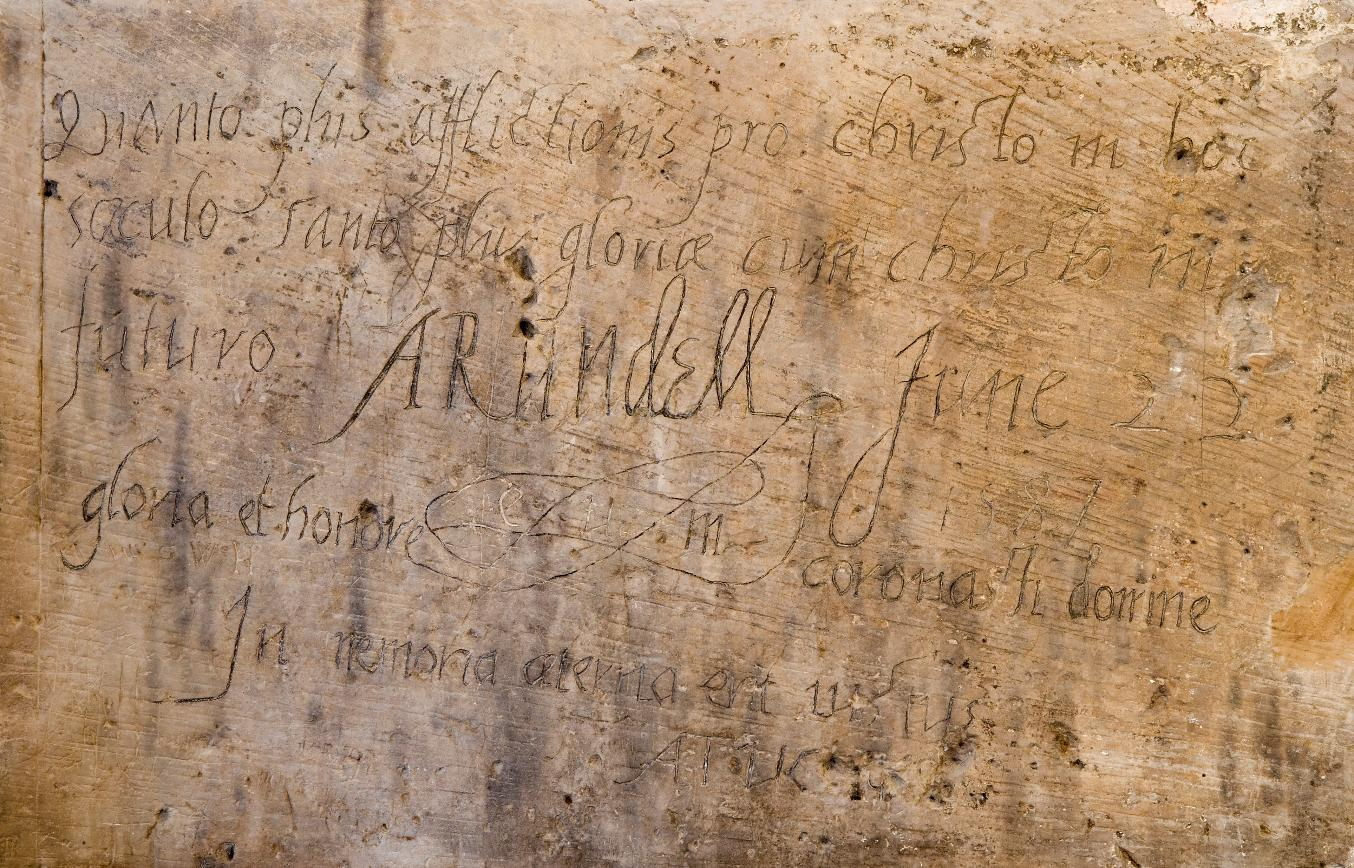 Quanto plus afflictionis pro christo in hoc
sæculo tanto plus gloriæ cum christo in
futuro ARündell June 22
1587
gloria et honore eum coronasti domine
In memoria æterna erit iustus